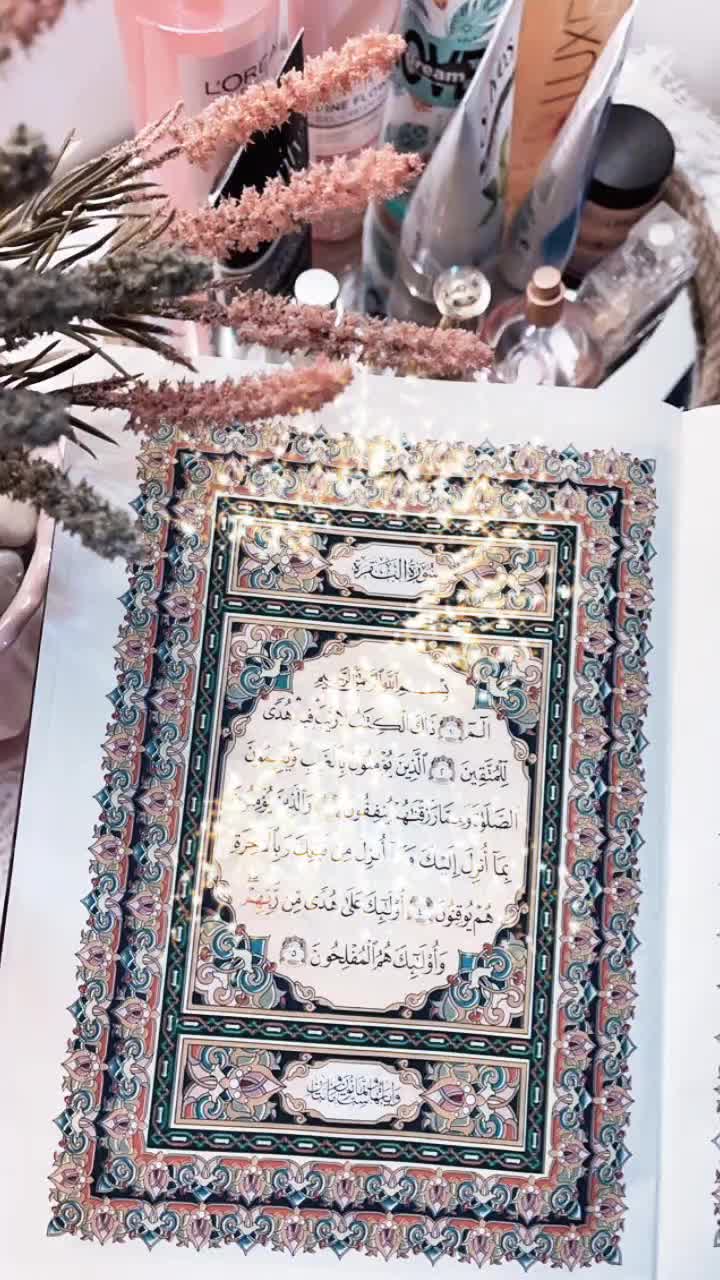 L'ORÉA
DINE FLOR
ream
LUX
سُورَةُ البَقَرَةِ
بِسْمِ ٱللَّهِ ٱلرَّحْمَٰنِ ٱلرَّحِيمِ
الٓمٓ ١ ذَٰلِكَ ٱلْكِتَٰبُ لَا رَيْبَ فِيهِ هُدًى
لِّلْمُتَّقِينَ ٢ ٱلَّذِينَ يُؤْمِنُونَ بِٱلْغَيْبِ وَيُقِيمُونَ
ٱلصَّلَوٰةَ وَمِمَّا رَزَقْنَٰهُمْ يُنفِقُونَ ٣ وَٱلَّذِينَ يُؤْمِنُونَ
بِمَآ أُنزِلَ إِلَيْكَ وَمَآ أُنزِلَ مِن قَبْلِكَ وَبِٱلْءَاخِرَةِ
هُمْ يُوقِنُونَ ٤ أُو۟لَٰٓئِكَ عَلَىٰ هُدًى مِّن رَّبِّهِمْ ۖ
وَأُو۟لَٰٓئِكَ هُمُ ٱلْمُفْلِحُونَ ٥